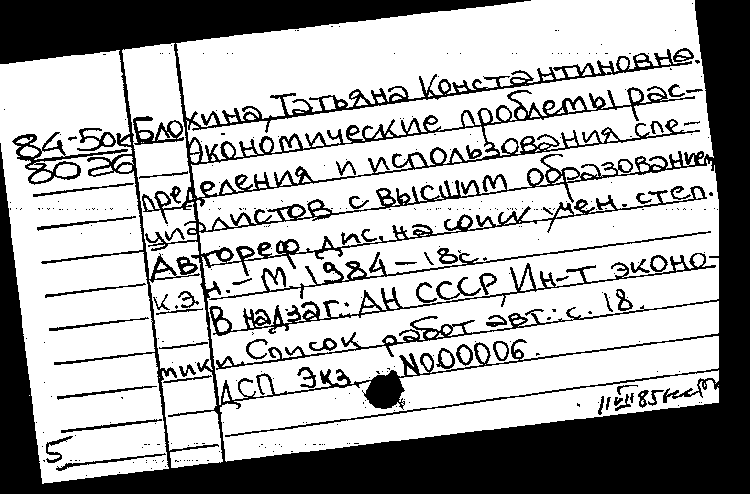 84-5ок Блохина, Татьяна Константиновна.
8026 Экономические проблемы рас-
пределения и использования спе-
циалистов с высшим образованием
Автореф. дис. на соиск. учен. степ.
к.э.н. - М, 1984 - 18с.
В надзаг.: АН СССР, Ин-т эконо-
мики. Список работ авт.: с. 18.
ДСП Экз. N000006.
5